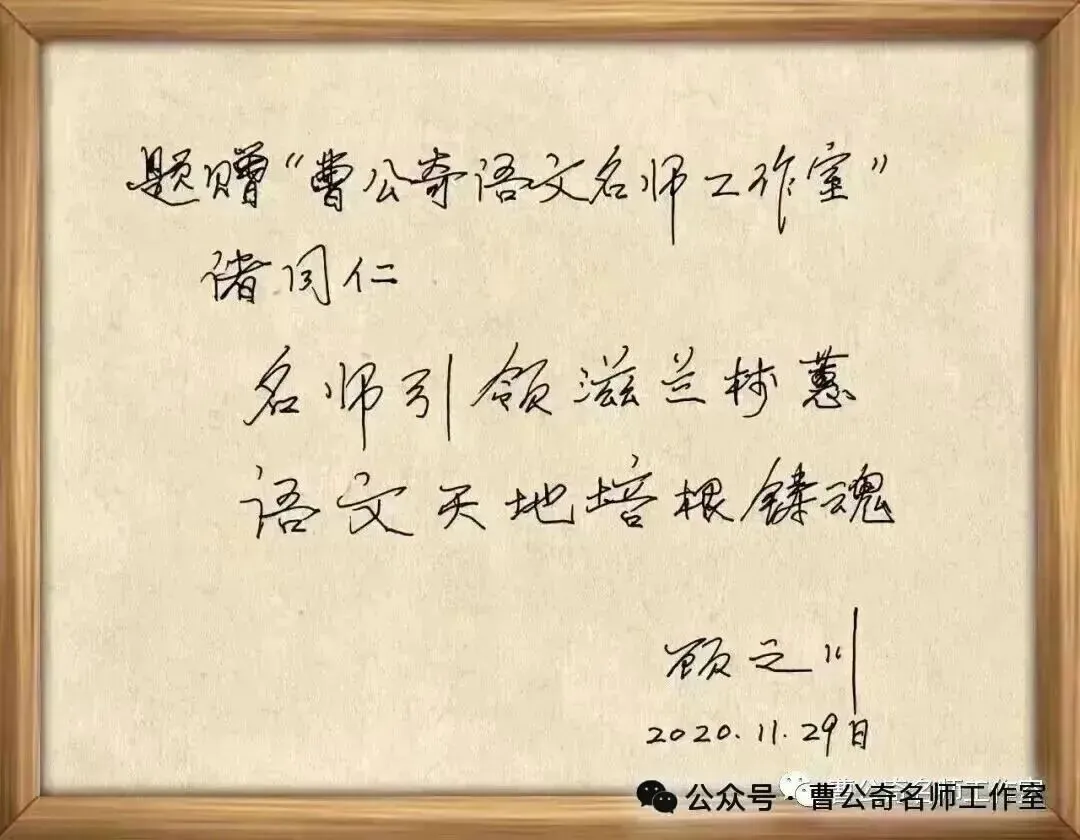 题赠“曹公奇语文名师工作室”
诸同仁
名师引领滋兰树蕙
语文天地培根铸魂
顾之川
2020.11.29日
公众号·曹公奇名师工作室
曹公奇名师工作室